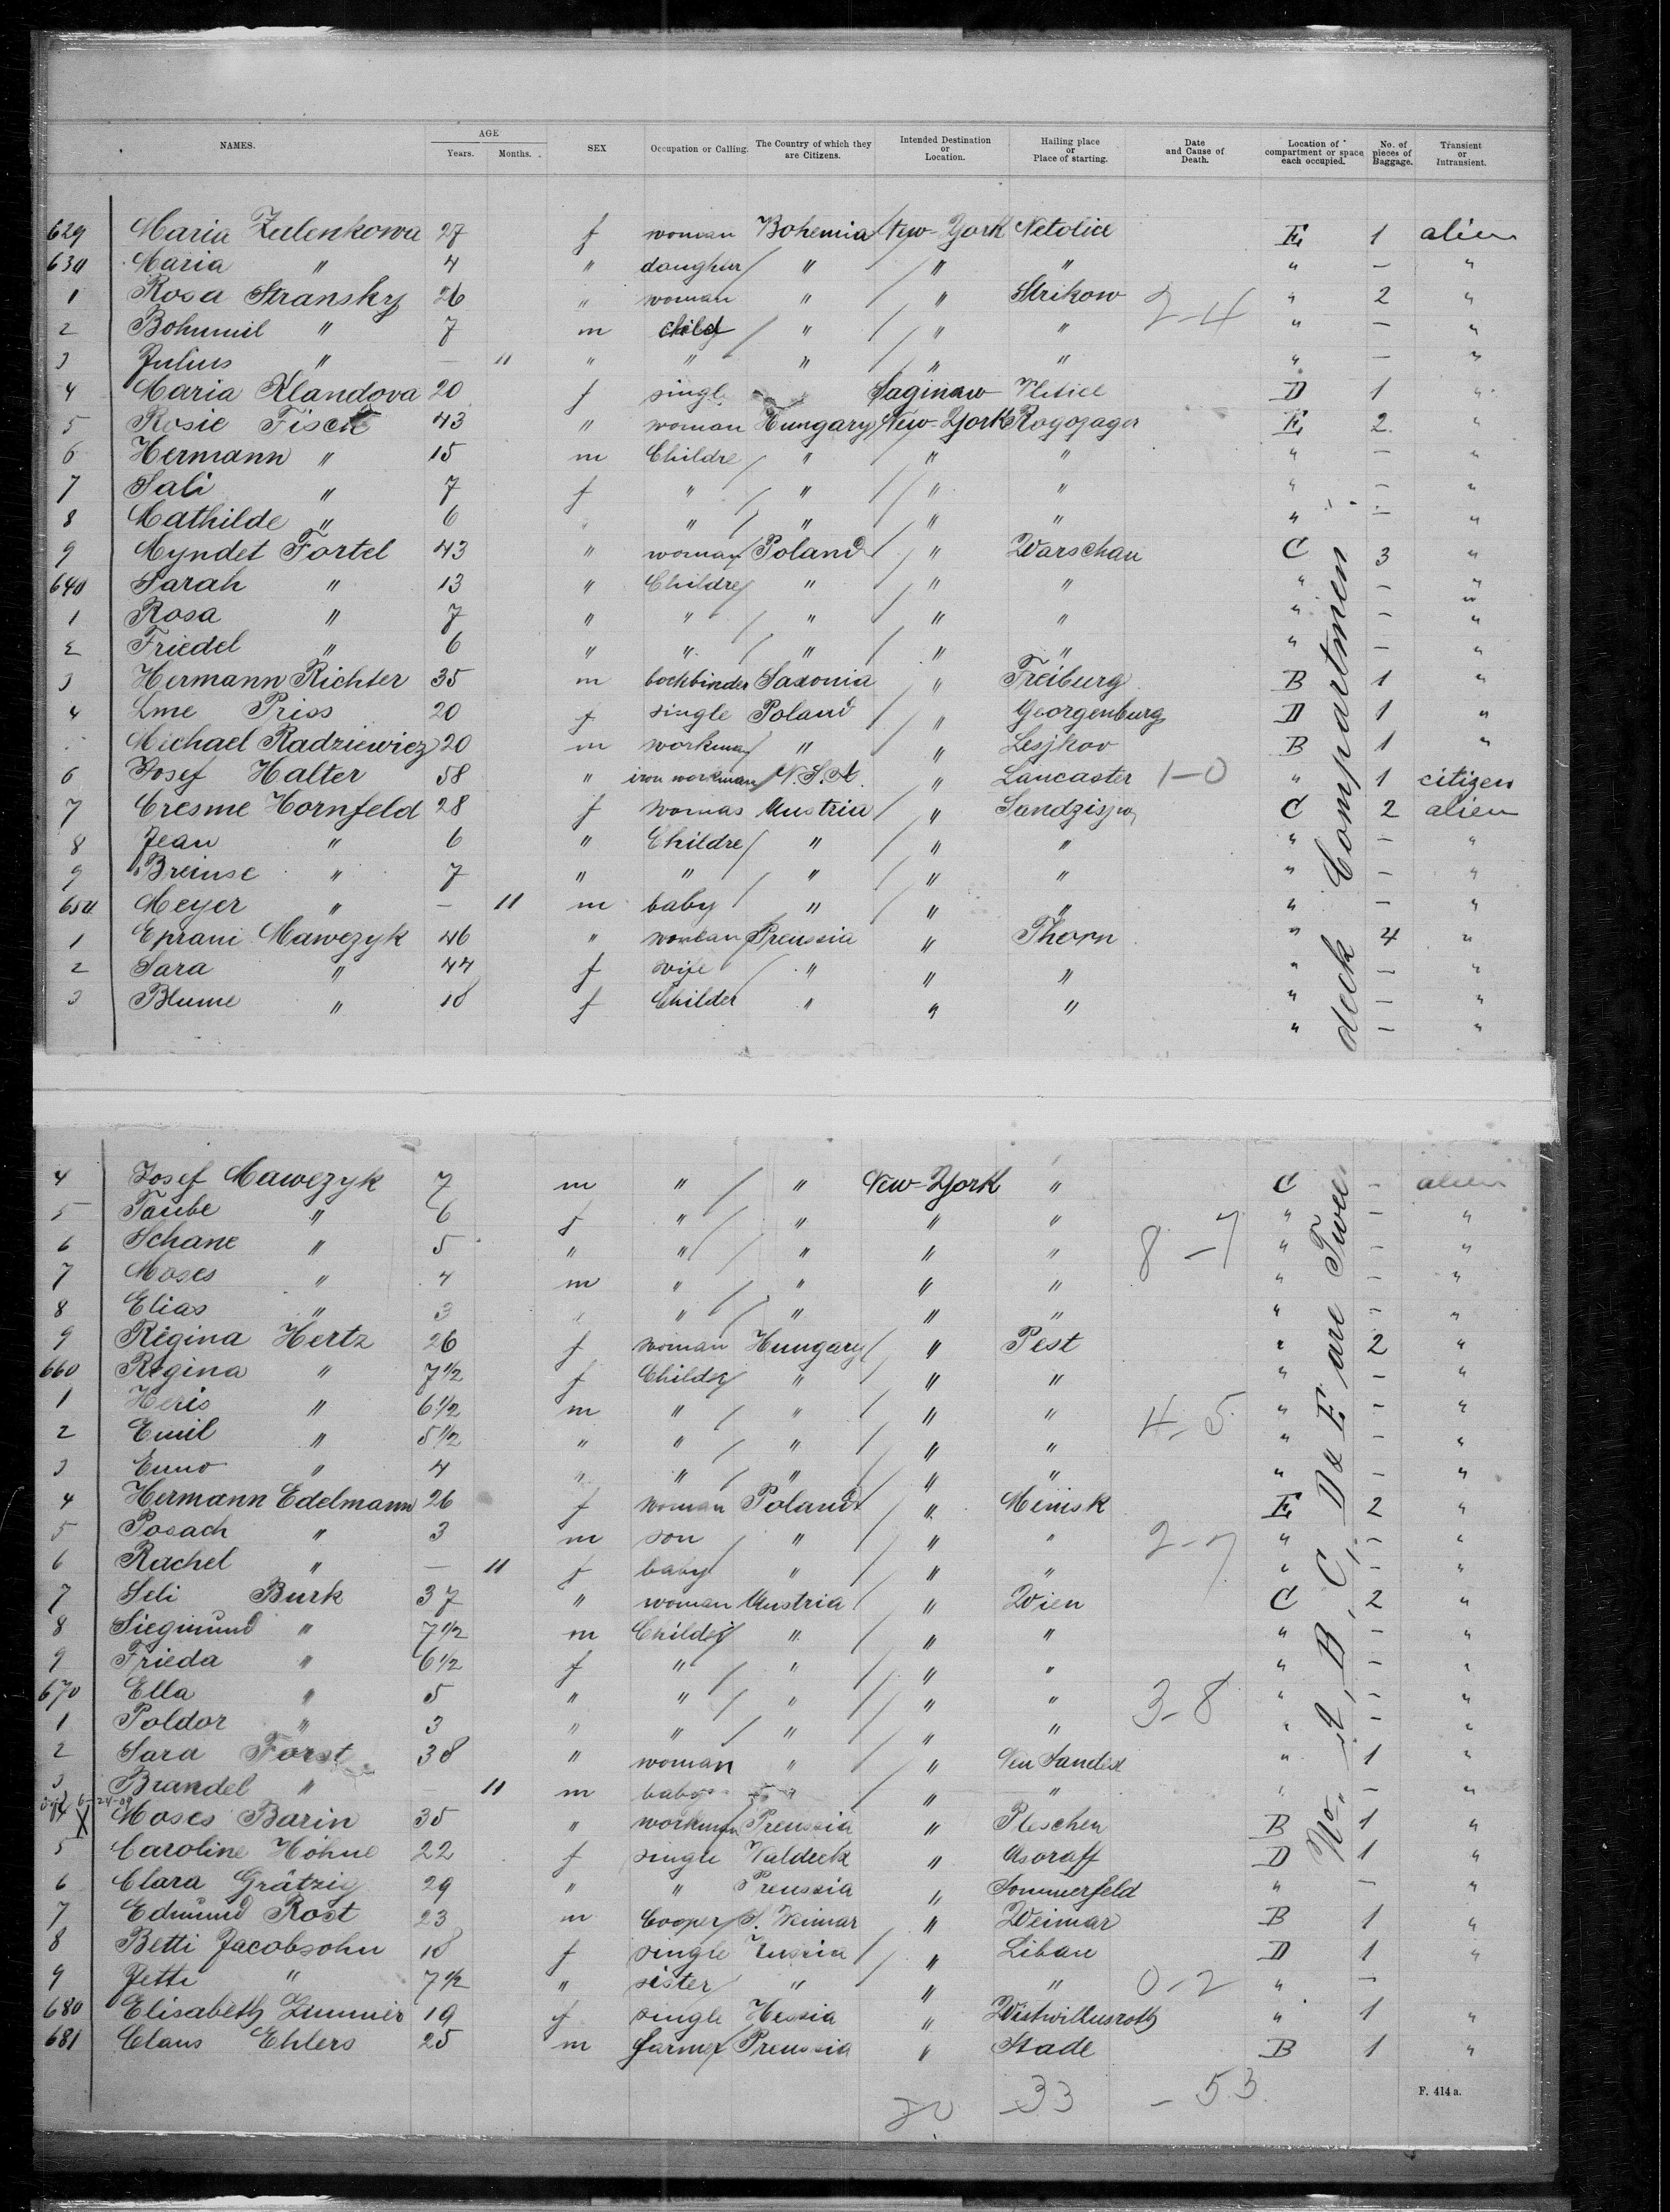 NAMES. AGE Years. Months. SEX Occupation or Calling. The Country of which they are Citizens. Intended Destination or Location. Hailing place or Place of starting. Date and Cause of Death. Location of compartment or space each occupied. No. of pieces of Baggage. Transient or Intransient.
629 Maria Zulenkowa 27 f woman Bohemia New-York Netolice E 1 alien
630 Maria " 4 " daughter " " " " — "
1 Rosa Stransky 26 " woman " " Strikow 2-4 " 2 "
2 Bohumil " 7 m child " " " " — "
3 Julius " — 11 " " " " " " — "
4 Maria Klandova 20 f single Saginaw D 1 "
5 Rosie Fisch 43 " woman Hungary New-York E 2 "
6 Hermann " 15 m Childre " " " " — "
7 Sali " 7 f " " " " " — "
8 Mathilde " 6 " " " " " " — "
9 Myndet Fortel 43 " woman Poland " Warschau C 3 "
640 Sarah " 13 " Childre " " " " — "
1 Rosa " 7 " " " " " " — "
2 Friedel " 6 " " " " " " — "
3 Hermann Richter 35 m bochbinder Saxonia " Freiburg B 1 "
4 Lme Priss 20 f single Poland " Georgenburg D 1 "
Michael Radziewicz 20 m workman " " Lesjkov B 1 "
6 Josef Halter 58 " iron workman U.S.A. " Lancaster 1-0 " 1 citizen
7 Cresme Hornfeld 28 f woman Austria " C 2 alien
8 Jean " 6 " Childre " " " " — "
9 Breinse " 7 " " " " " " — "
650 Meyer " — 11 m baby " " " " — "
1 Eprani Mawczyk 46 " workman Preussia " Thorn " 4 "
2 Sara " 44 f wife " " " " — "
3 Blume " 18 f Childer " " " " — "
" — "
deck Compartment
4 Josef Mawczyk 7 m " " New-York " C — alien
5 Taube " 6 f " " " " " — "
6 Schane " 5 " " " " " 8-7 " — "
7 Moses " 4 m " " " " " — "
8 Elias " 3 " " " " " " — "
9 Regina Hertz 26 f woman Hungary " Pest " 2 "
660 Regina " 7 1/2 f Childer " " " " — "
1 Heris " 6 1/2 m " " " " 4-5 " — "
2 Emil " 5 1/2 " " " " " " — "
3 Enno " 4 " " " " " " — "
4 Hermann Edelmann 26 f woman Poland " Minisk E 2 "
5 Posach " 3 m son " " " 2-7 " — "
6 Rachel " — 11 f baby " " " " — "
7 Seli Burk 37 " woman Austria " Wien C 2 "
8 Siegmund " 7 1/2 m Childer " " " " — "
9 Frieda " 6 1/2 f " " " " " — "
670 Ella " 5 " " " " " 3-8 " — "
1 Poldor " 3 " " " " " " — "
2 Sara Forst 38 " woman " " Neu Sandez " 1 "
3 Brandel " 11 m baby " " " — "
X Moses Barin 35 " workman Preussia " Pleschen B 1 "
5 Caroline Höhne 22 f single Waldeck " Asoraff D 1 "
6 Clara Grätzig 29 " " Preussia " Sommerfeld " — "
7 Edmund Rost 23 m Cooper S. Weimar " Weimar B 1 "
8 Betti Jacobsohn 18 f single Russia " Libau D 1 "
9 Jetti " 7 1/2 " sister " " " 0-2 " —
680 Elisabeth 19 f single Hessia " " 1 "
681 Claus Ehlers 25 m farmer Preussia " Stade B 1 "
No. A, B, C, D & E are Tween
33 - 53
F. 414 a.